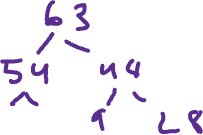 63
54 44
9 28